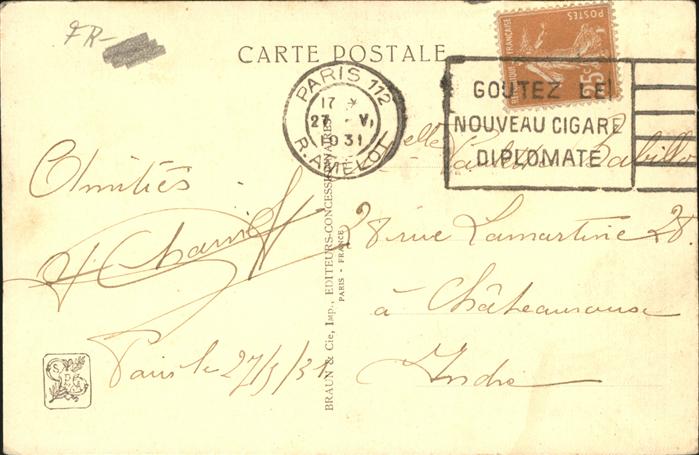 FR-
CARTE POSTALE
POSTES
REPUBLIQUE FRANÇAISE
25c
PARIS 112
17 *
27 - V.
1931
R. AMELOT
GOUTEZ LE
NOUVEAU CIGARE
DIPLOMATE
Amitiés
Paris le 27/5/31
BRAUN & Cie, Imp., EDITEURS-CONCESSIONNAIRES
PARIS - FRANCE
elle
28 rue Lamartine 28
à Châteauroux
Indre